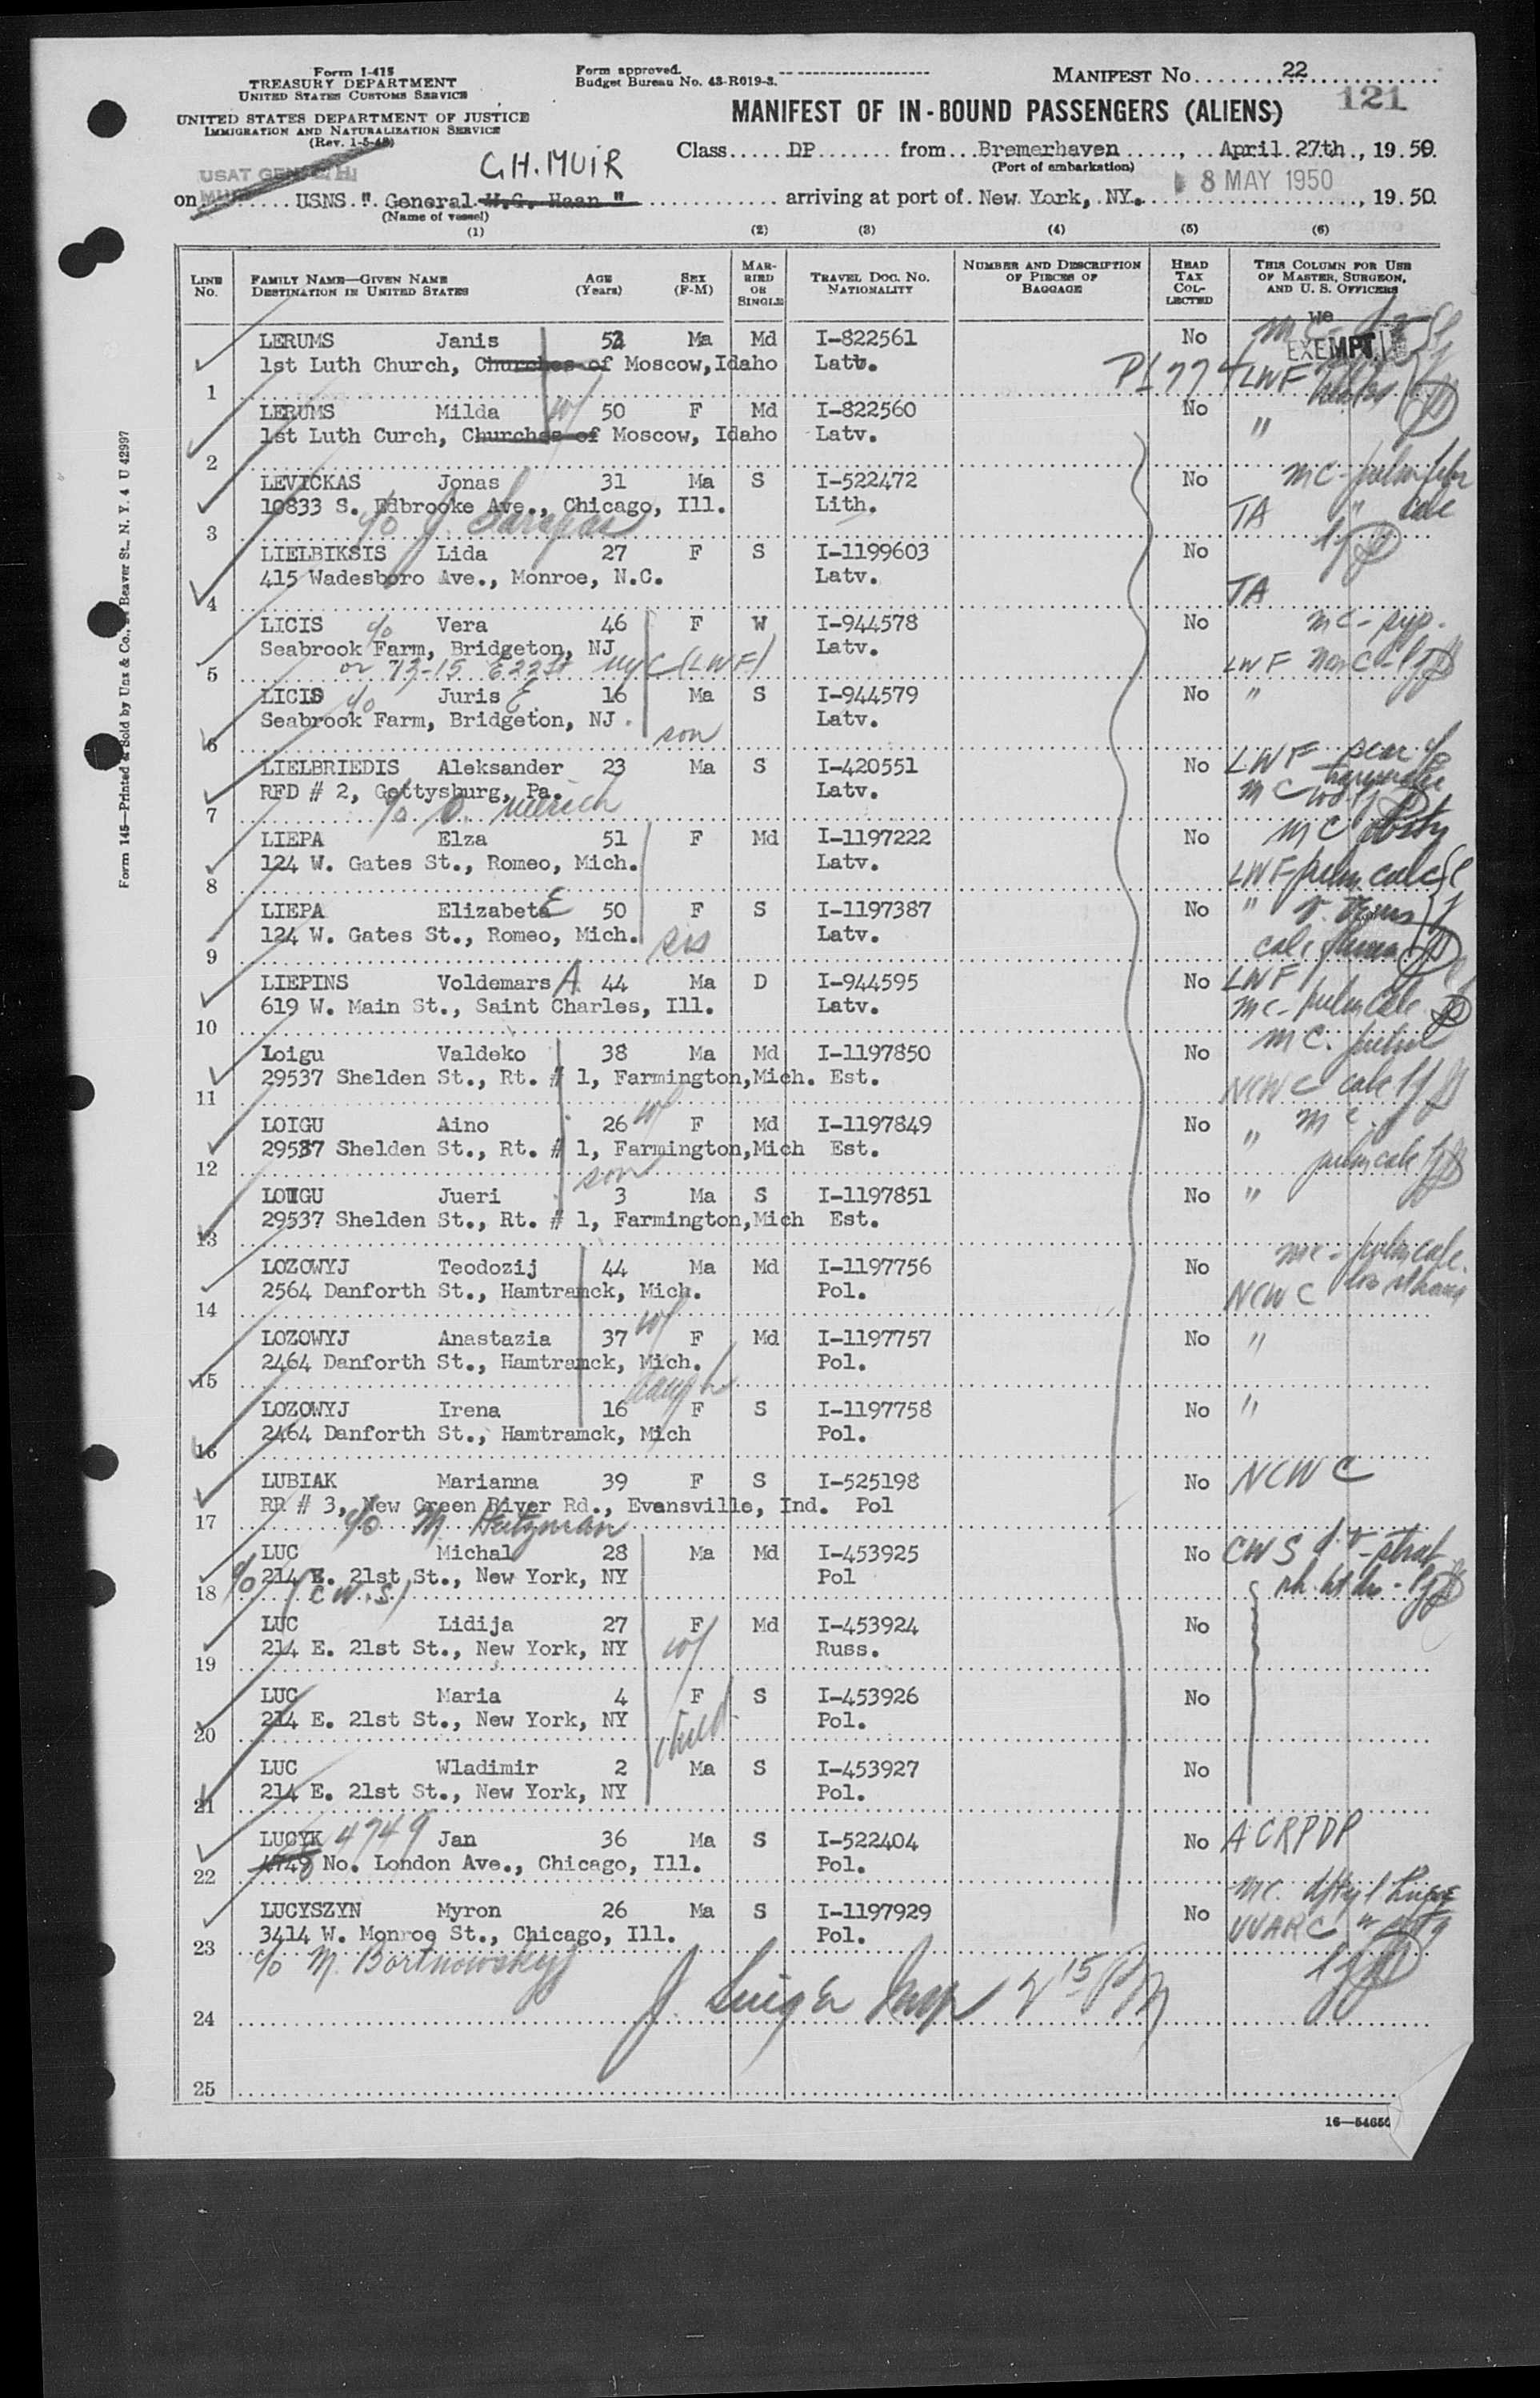 Form I-415
TREASURY DEPARTMENT
UNITED STATES CUSTOMS SERVICE
UNITED STATES DEPARTMENT OF JUSTICE
IMMIGRATION AND NATURALIZATION SERVICE
(Rev. 1-5-48)
Form approved.
Budget Bureau No. 43-R019-3.
MANIFEST No. 22
121
MANIFEST OF IN-BOUND PASSENGERS (ALIENS)
Class DP from Bremerhaven, April 27th, 1950.
(Port of embarkation)
USAT GEN
G.H.MUIR
8 MAY 1950
on USNS " General H.G. Haan " arriving at port of New York, NY., 19.50
(Name of vessel)
(1) (2) (3) (4) (5) (6)
LINE No. FAMILY NAME—GIVEN NAME DESTINATION IN UNITED STATES AGE (Years) SEX (F-M) MARRIED OR SINGLE TRAVEL DOC. NO. NATIONALITY NUMBER AND DESCRIPTION OF PIECES OF BAGGAGE HEAD TAX COLLECTED THIS COLUMN FOR USE OF MASTER, SURGEON, AND U. S. OFFICERS
LERUMS Janis Ma Md I-822561 No mc EXEMPT
1 1st Luth Church, Churches of Moscow, Idaho Latv. PL 774 LWF
LERUMS Milda w/ 50 F Md I-822560 No "
2 1st Luth Curch, Churches of Moscow, Idaho Latv.
LEVICKAS Jonas 31 Ma S I-522472 No mc-pulm
3 10833 S. Edbrooke Ave., Chicago, Ill. Lith. TA " calc
c/o J.
LIELBIKSIS Lida 27 F S I-1199603 No
4 415 Wadesboro Ave., Monroe, N.C. Latv. TA
LICIS c/o Vera 46 F W I-944578 No mc-syp.
5 Seabrook Farm, Bridgeton, NJ Latv. LWF
or 73-15 E 22 St NYC (LWF)
LICIS c/o Juris E. 16 Ma S I-944579 No "
6 Seabrook Farm, Bridgeton, NJ. son Latv.
LIELBRIEDIS Aleksander 23 Ma S I-420551 No LWF scar
7 RFD # 2, Gettysburg, Pa. Latv. mc
c/o O.
LIEPA Elza 51 F Md I-1197222 No mc
8 124 W. Gates St., Romeo, Mich. Latv. LWF pulm calc
LIEPA Elizabete E 50 F S I-1197387 No " v.
9 124 W. Gates St., Romeo, Mich. sis Latv.
LIEPINS Voldemars A. 44 Ma D I-944595 No LWF
10 619 W. Main St., Saint Charles, Ill. Latv. mc-pulm calc
Loigu Valdeko 38 Ma Md I-1197850 No mc.
11 29537 Shelden St., Rt. # 1, Farmington, Mich. Est. NCWC calc
LOIGU Aino 26 w/ F Md I-1197849 No " mc.
12 29537 Shelden St., Rt. # 1, Farmington, Mich Est. pulm calc
son
LOIGU Jueri 3 Ma S I-1197851 No "
13 29537 Shelden St., Rt. # 1, Farmington, Mich Est.
LOZOWYJ Teodozij 44 Ma Md I-1197756 No mc-pulm calc.
14 2564 Danforth St., Hamtramck, Mich. Pol. NCWC
LOZOWYJ Anastazia 37 w/ F Md I-1197757 No "
15 2464 Danforth St., Hamtramck, Mich. Pol.
daugh
LOZOWYJ Irena 16 F S I-1197758 No "
16 2464 Danforth St., Hamtramck, Mich Pol.
LUBIAK Marianna 39 F S I-525198 No NCWC
17 RR # 3, New Green River Rd., Evansville, Ind. Pol
c/o M. Heitzman
LUC Michal 28 Ma Md I-453925 No CWS
18 c/o 214 E. 21st St., New York, NY Pol
(C.W.S)
LUC Lidija 27 F Md I-453924 No
19 214 E. 21st St., New York, NY w/ Russ.
LUC Maria 4 F S I-453926 No
20 214 E. 21st St., New York, NY Pol.
child
LUC Wladimir 2 Ma S I-453927 No
21 214 E. 21st St., New York, NY Pol.
LUCYK 4749 Jan 36 Ma S I-522404 No ACRPDP
22 4749 No. London Ave., Chicago, Ill. Pol.
LUCYSZYN Myron 26 Ma S I-1197929 No mc.
23 3414 W. Monroe St., Chicago, Ill. Pol. UUARC
c/o M. Bortnowskyj
24 J. Insp 2 15 PM
25
16—54650
Form 145—Printed & Sold by Unz & Co., Beaver St. N. Y. 4 U 42997